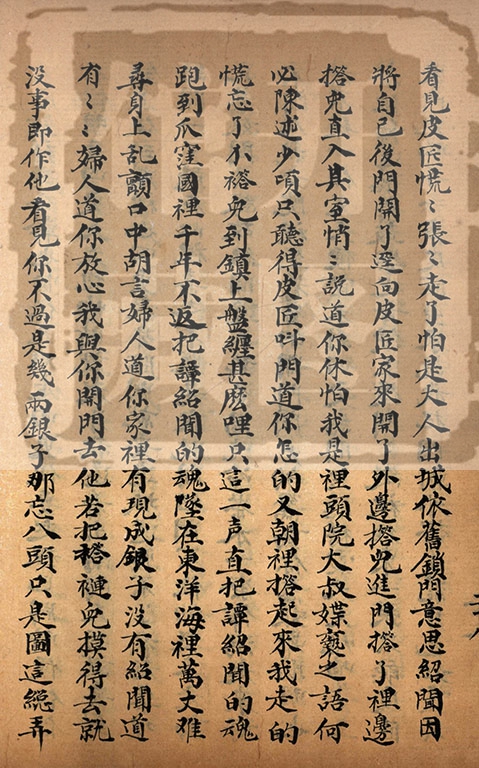 看見皮匠慌〻張〻走了怕是大人出城依舊鎖門意思紹聞因
將自己後門開了逕向皮匠家來開了外邊搭兒進門搭了裡邊
搭兒直入其室悄〻說道你休怕我是裡頭院大叔媟褻之語何
必陳述少頃只聽得皮匠叫門道你怎的又朝裡搭起來我走的
慌忘了不褡兒到鎮上盤纏甚麽哩只這一声直把譚紹聞的魂
跑到爪窪國裡千年不返把譚紹聞的魄墜在東洋海裡萬丈难
尋身上乱顫口中胡言婦人道你家裡有現成銀子没有紹聞道
有〻〻婦人道你放心我與你開門去他若把褡褳兒摸得去就
没事即作他看見你不過是幾兩銀子那忘八頭只是圖這総弄